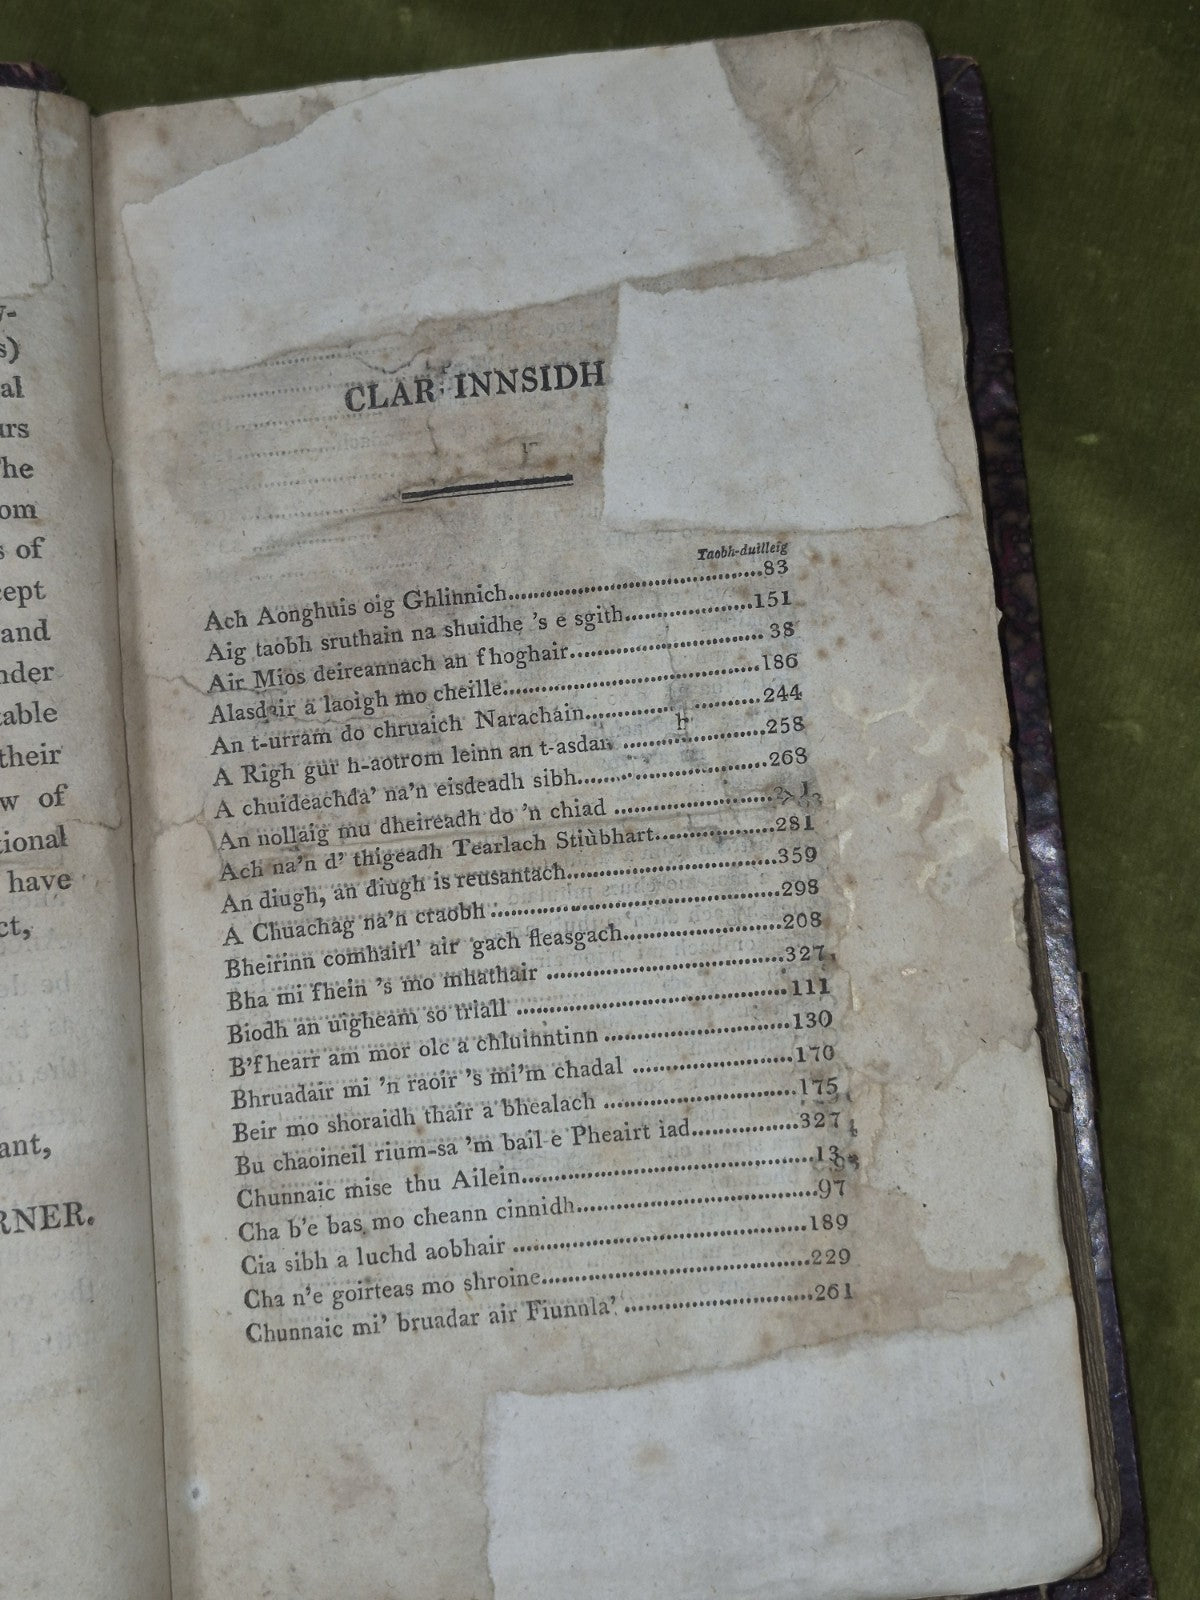 y-
s)
al
urs
The
om
s of
cept
and
nder
table
their
w of
tional
have
ct,
ant,
RNER.
CLAR INNSIDH
Taobh-duilleig
Ach Aonghuis oig Ghlinnich..............................83
Aig taobh sruthain na shuidhe 's e sgith..............151
Air Mios deireannach an fhoghair....................... 38
Alasdair a laoigh mo cheille...............................186
An t-urram do chruaich Narachain......................244
A Righ gur h-aotrom leinn an t-asdan ................258
A chuideachda' na'n eisdeadh sibh......................268
An nollaig mu dheireadh do 'n chiad
Ach na'n d' thigeadh Tearlach Stiùbhart..............281
An diugh, an diugh is reusantach........................359
A Chuachag na'n craobh ...................................298
Bheirinn comhairl' air gach fleasgach..................208
Bha mi fhein 's mo mhathair .............................327
Biodh an uigheam so triall .................................111
B'fhearr am mor olc a chluinntinn .....................130
Bhruadair mi 'n raoir 's mi'm chadal ..................170
Beir mo shoraidh thair a bhealach ......................175
Bu chaoineil rium-sa 'm baile Pheairt iad.............327
Chunnaic mise thu Ailein...................................13
Cha b'e bas mo cheann cinnidh...........................97
Cia sibh a luchd aobhair ....................................189
Cha n'e goirteas mo shroine................................229
Chunnaic mi' bruadar air Fiunnla' ......................261